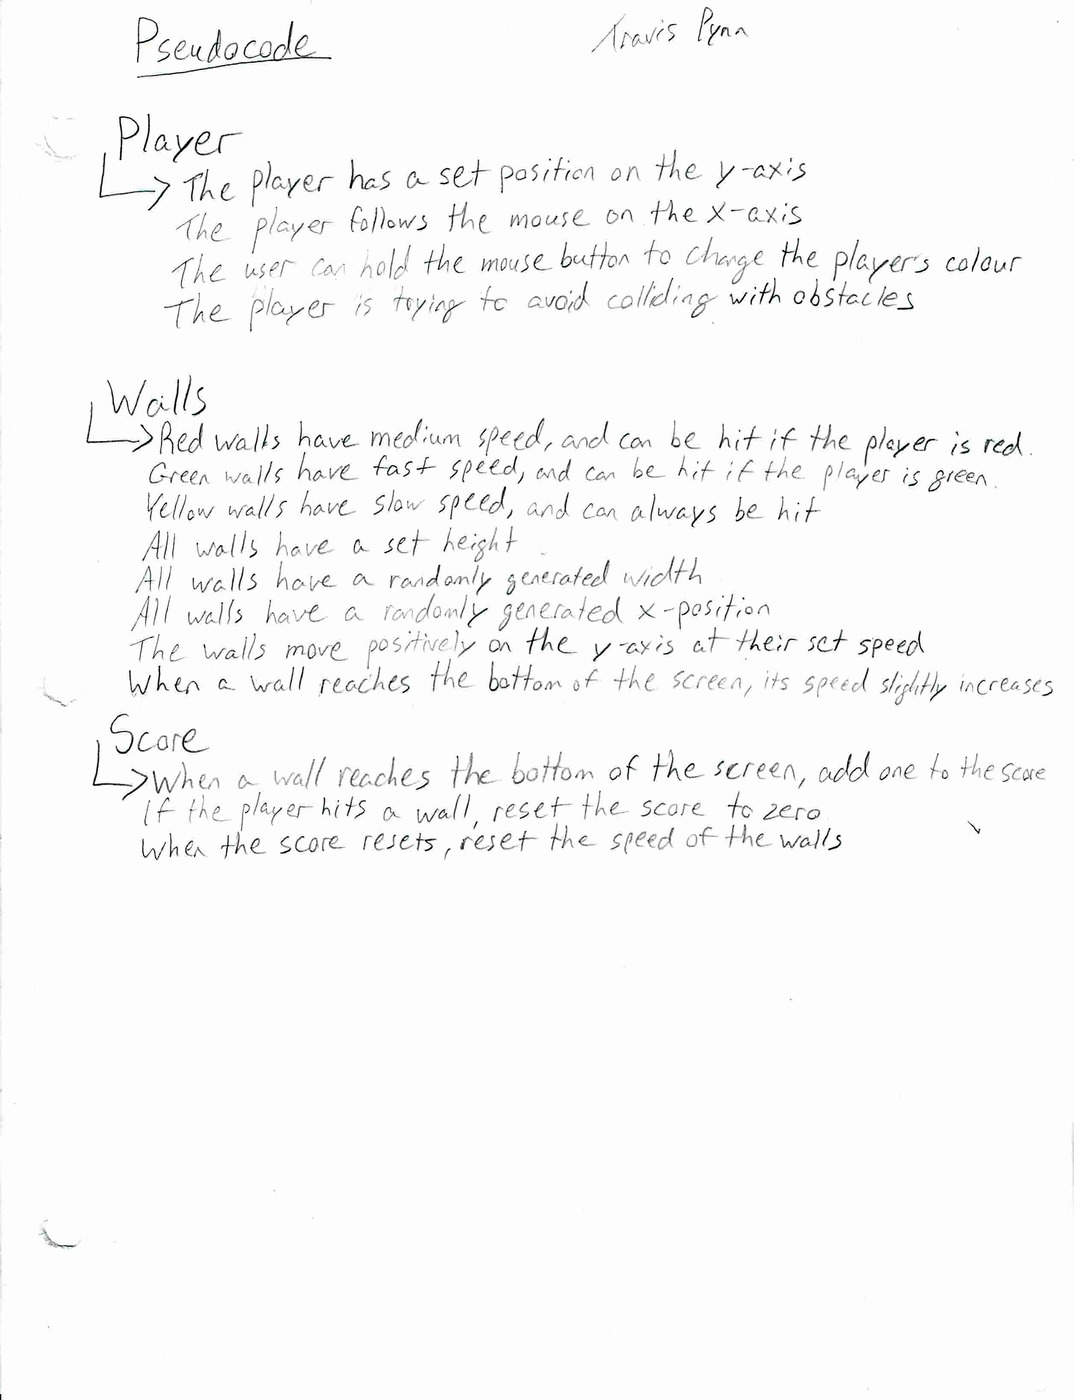 Pseudocode
Travis Pynn
Player
The player has a set position on the y-axis
The player follows the mouse on the x-axis
The user can hold the mouse button to change the player's colour
The player is trying to avoid colliding with obstacles
Walls
Red walls have medium speed, and can be hit if the player is red.
Green walls have fast speed, and can be hit if the player is green.
Yellow walls have slow speed, and can always be hit
All walls have a set height
All walls have a randomly generated width
All walls have a randomly generated x-position
The walls move positively on the y-axis at their set speed
When a wall reaches the bottom of the screen, its speed slightly increases
Score
When a wall reaches the bottom of the screen, add one to the score
If the player hits a wall, reset the score to zero
When the score resets, reset the speed of the walls